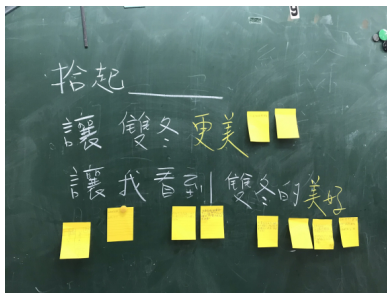 拾起______
讓雙冬更美
讓我看到雙冬的美好